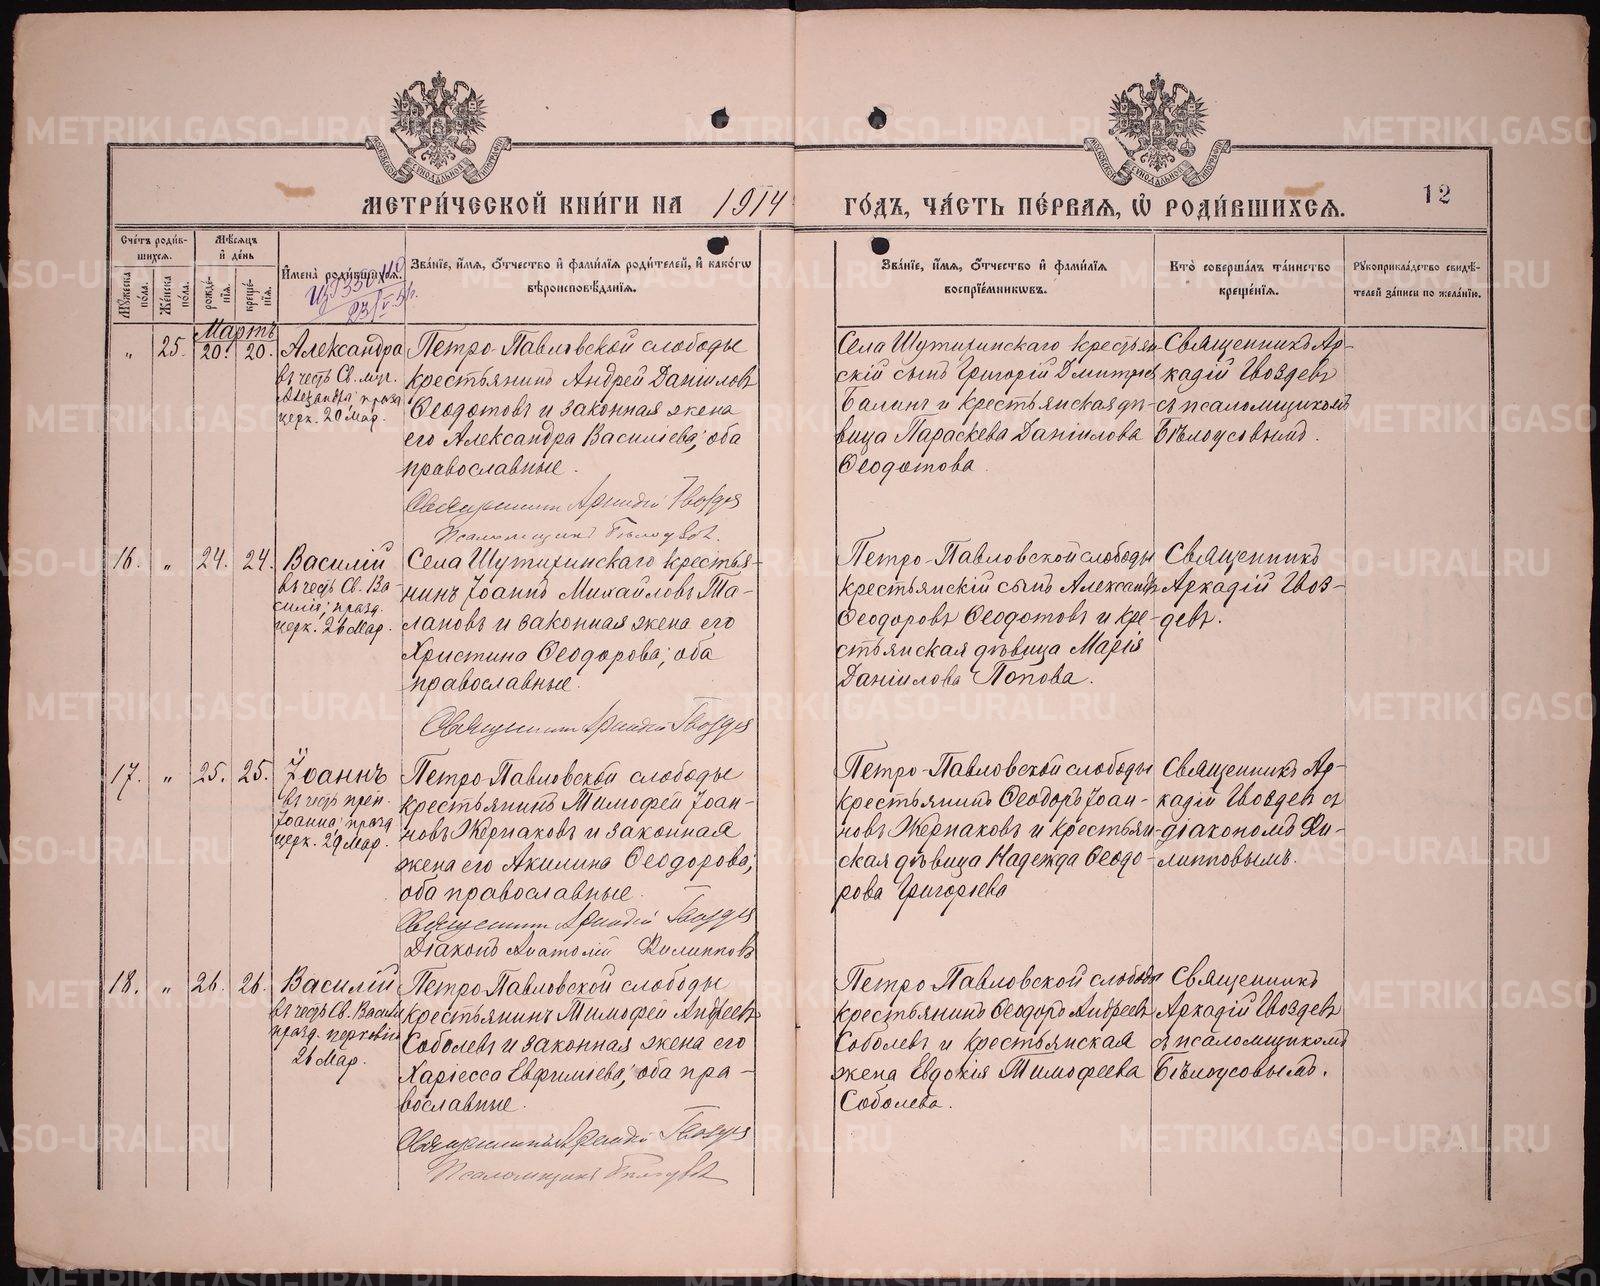 МЕТРИ́ЧЕСКОЙ КНИ́ГИ НА 1914 ГО́ДЪ, ЧА́СТЬ ПЕ́РВАѦ, Ѡ РОДИ́ВШИХСѦ.
12
Сче́тъ роди́в-
шихсѧ.
Мꙋ́жеска по́ла.
Же́нска по́ла.
Мѣ́сѧцъ
и҆ де́нь
рожде́-
нїѧ.
креще́-
нїѧ.
И҆мена̀ роди́вшихсѧ.
Зва́нїе, и҆́мѧ, ѻ҆́тчество и҆ фами́лїѧ роди́телей, и҆ како́гѡ
вѣроисповѣ́данїѧ.
Зва́нїе, и҆́мѧ, ѻ҆́тчество и҆ фами́лїѧ
воспрїе́мникѡвъ.
Кто̀ соверша́лъ та́инство
креще́нїѧ.
Рꙋкоприкла́дство свидѣ́-
телей за́писи по жела́нїю.
Мартъ
" 25. 20. 20.
Александра
въ честь Св. муч.
Александры; празд.
церк. 20 Мар.
Петро-Павловской слободы
крестьянинъ Андрей Даніиловъ
Ѳеодотовъ и законная жена
его Александра Василіева; оба
православные.
Священникъ Аркадій Гвоздевъ
Псаломщикъ Бѣлоусовъ.
Села Шутихинскаго крестьян-
скій сынъ Григорій Дмитріевъ
Балинъ и крестьянская дѣ-
вица Параскева Даніилова
Ѳеодотова.
Священникъ Ар-
кадій Гвоздевъ
съ псаломщикомъ
Бѣлоусовымъ.
16. " 24. 24.
Василій
въ честь Св. Ва-
силія; празд.
церк. 26 Мар.
Села Шутихинскаго крестья-
нинъ Іоаннъ Михайловъ Та-
лановъ и законная жена его
Христина Ѳеодорова; оба
православные.
Священникъ Аркадій Гвоздевъ
Петро-Павловской слободы
крестьянскій сынъ Александръ
Ѳеодоровъ Ѳеодотовъ и кре-
стьянская дѣвица Марія
Даніилова Попова.
Священникъ
Аркадій Гвоз-
девъ.
17. " 25. 25.
Іоаннъ
въ честь преп.
Іоанна; празд.
церк. 29 Мар.
Петро-Павловской слободы
крестьянинъ Тимофей Іоан-
новъ Жернаковъ и законная
жена его Акилина Ѳеодорова;
оба православные.
Священникъ Аркадій Гвоздевъ
Діаконъ Анатолій Филипповъ
Петро-Павловской слободы
крестьянинъ Ѳеодоръ Іоан-
новъ Жернаковъ и крестьян-
ская дѣвица Надежда Ѳеодо-
рова Григорьева
Священникъ Ар-
кадій Гвоздевъ съ
діакономъ Фи-
липповымъ.
18. " 26. 26.
Василій
въ честь Св. Василія
празд. церковію
26 Мар.
Петро-Павловской слободы
крестьянинъ Тимофей Андреевъ
Соболевъ и законная жена его
Харіесса Евфиміева; оба пра-
вославные.
Священникъ Аркадій Гвоздевъ
Псаломщикъ Бѣлоусовъ
Петро-Павловской слободы
крестьянинъ Ѳеодоръ Андреевъ
Соболевъ и крестьянская
жена Евдокія Тимофеева
Соболева.
Священникъ
Аркадій Гвоздевъ
съ псаломщикомъ
Бѣлоусовымъ.
METRIKI.GASO-URAL.RU